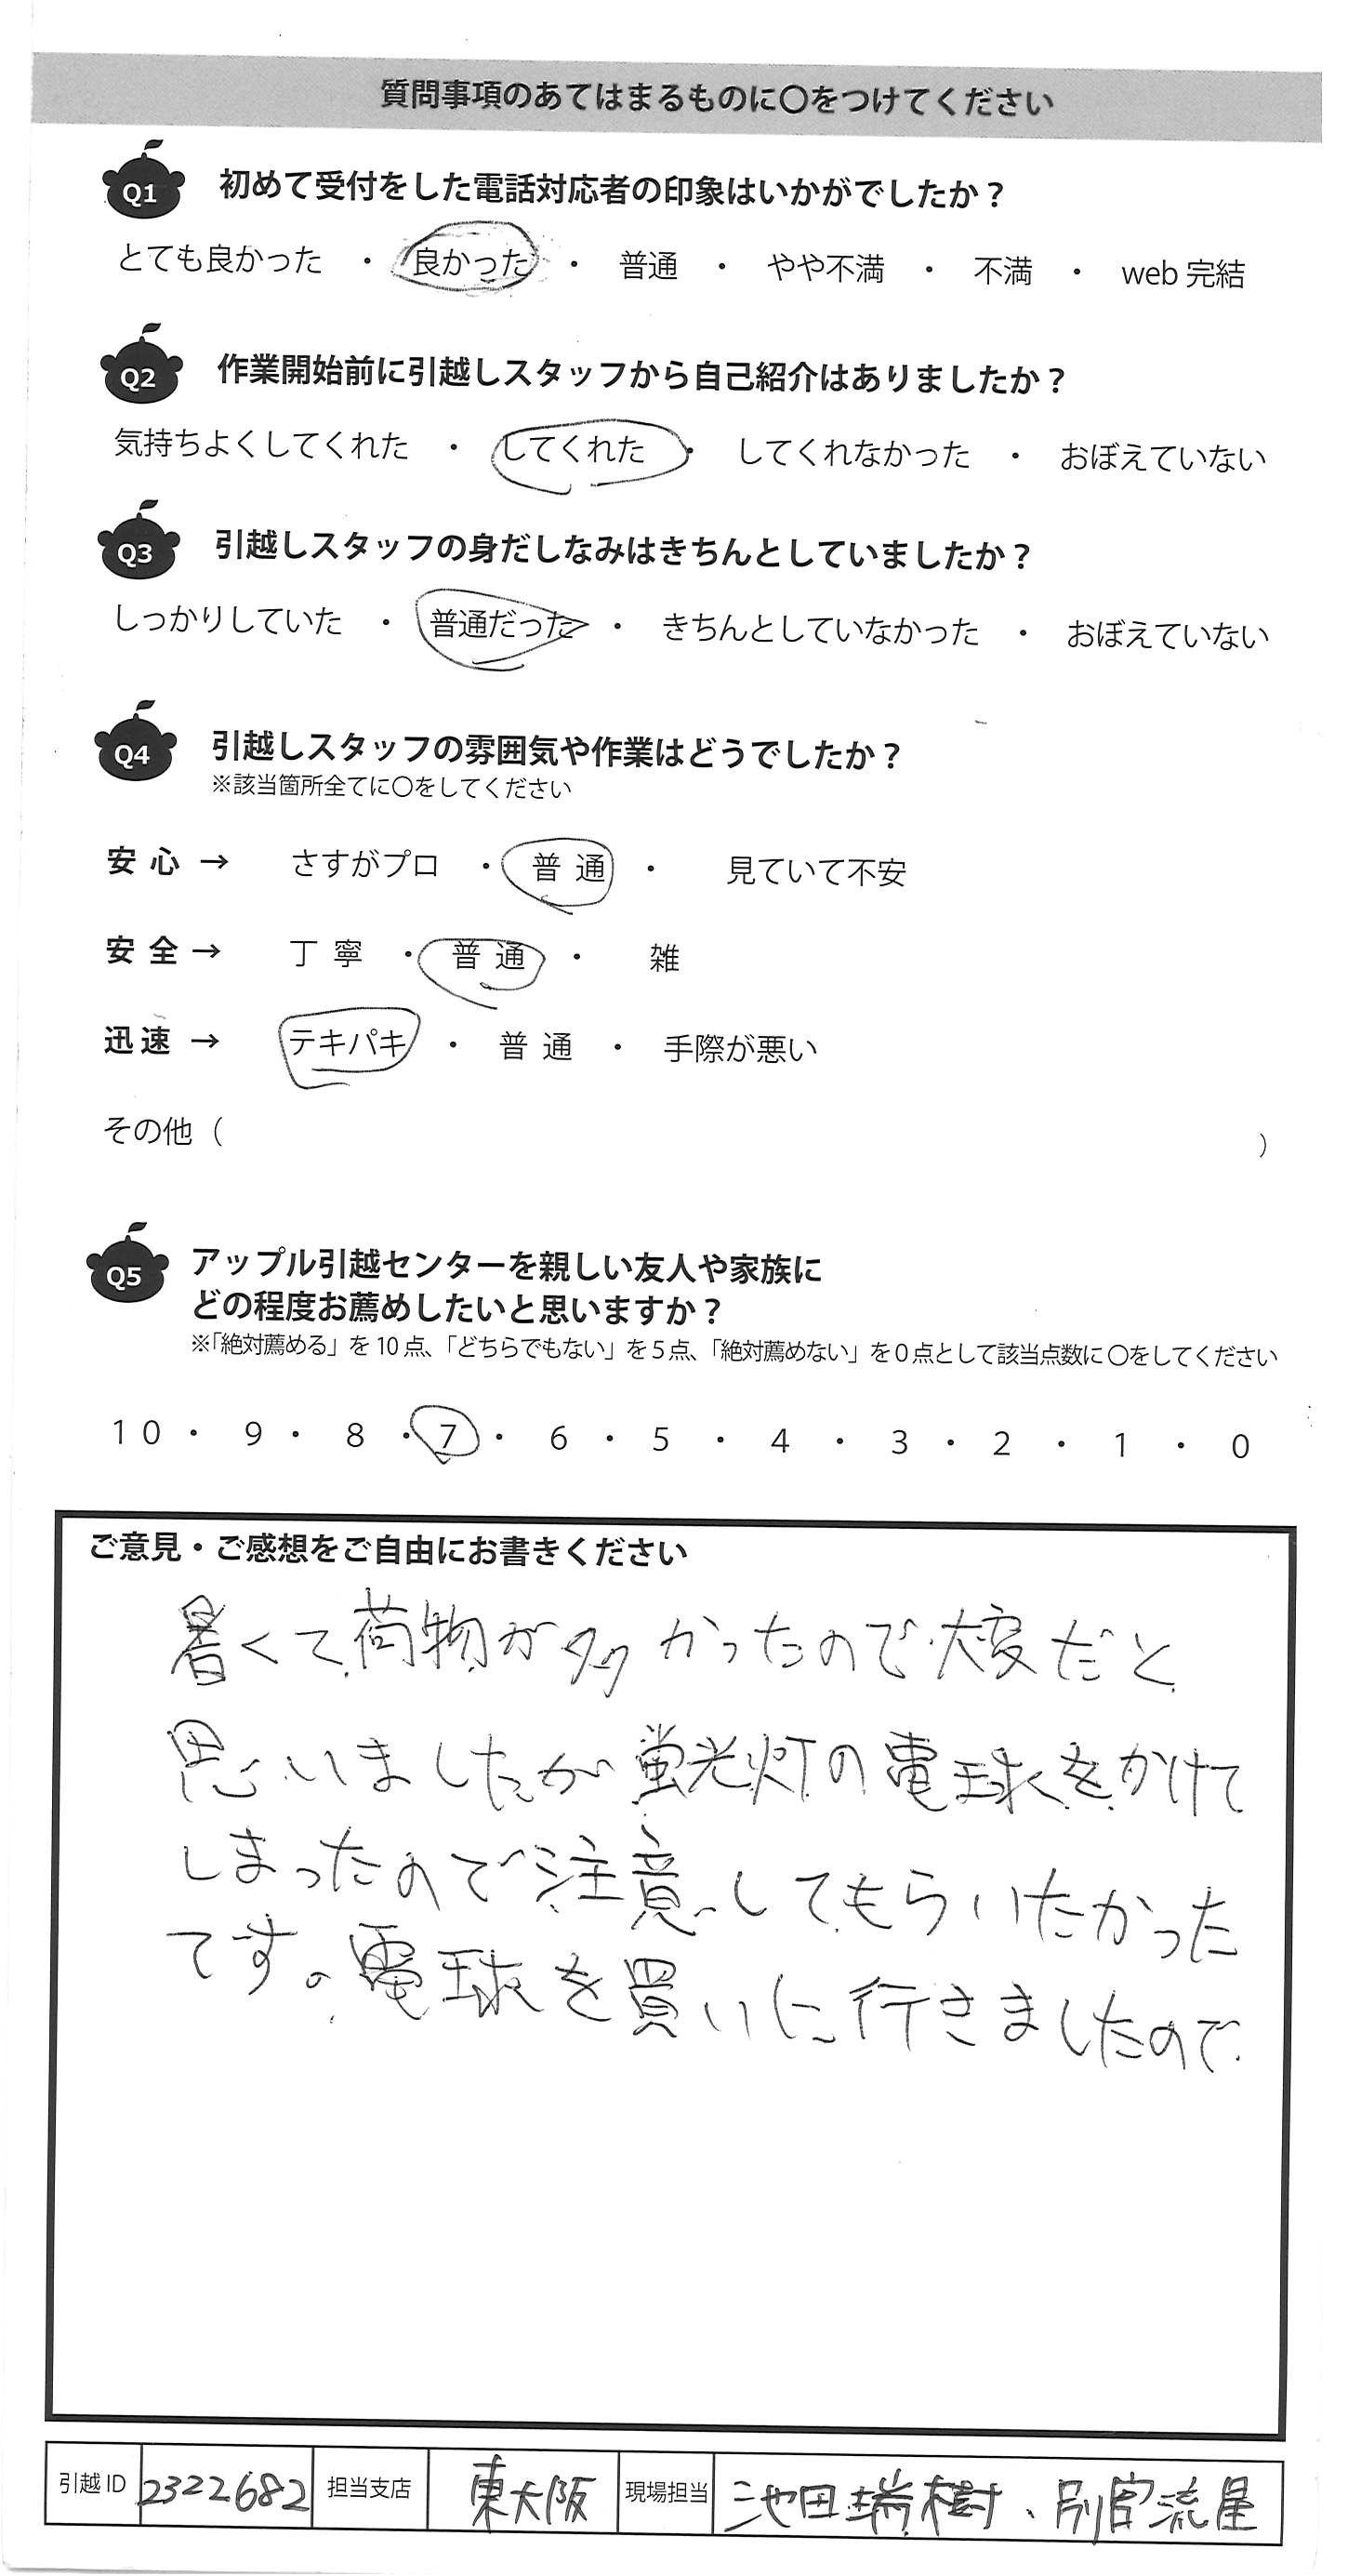 質問事項のあてはまるものに〇をつけてください
Q1 初めて受付をした電話対応者の印象はいかがでしたか？
とても良かった ・ 良かった ・ 普通 ・ やや不満 ・ 不満 ・ web 完結
Q2 作業開始前に引越しスタッフから自己紹介はありましたか？
気持ちよくしてくれた ・ してくれた ・ してくれなかった ・ おぼえていない
Q3 引越しスタッフの身だしなみはきちんとしていましたか？
しっかりしていた ・ 普通だった ・ きちんとしていなかった ・ おぼえていない
Q4 引越しスタッフの雰囲気や作業はどうでしたか？
※該当箇所全てに〇をしてください
安心 → さすがプロ ・ 普通 ・ 見ていて不安
安全 → 丁寧 ・ 普通 ・ 雑
迅速 → テキパキ ・ 普通 ・ 手際が悪い
その他（ ）
Q5 アップル引越センターを親しい友人や家族に
どの程度お薦めしたいと思いますか？
※「絶対薦める」を10点、「どちらでもない」を5点、「絶対薦めない」を0点として該当点数に〇をしてください
10 ・ 9 ・ 8 ・ 7 ・ 6 ・ 5 ・ 4 ・ 3 ・ 2 ・ 1 ・ 0
ご意見・ご感想をご自由にお書きください
暑くて荷物が多かったので大変だと
思いましたが蛍光灯の電球をかけて
しまったので注意してもらいたかった
てす。電球を買いに行きましたので
引越ID 2322682 担当支店 東大阪 現場担当 池田瑞樹、別宮流星